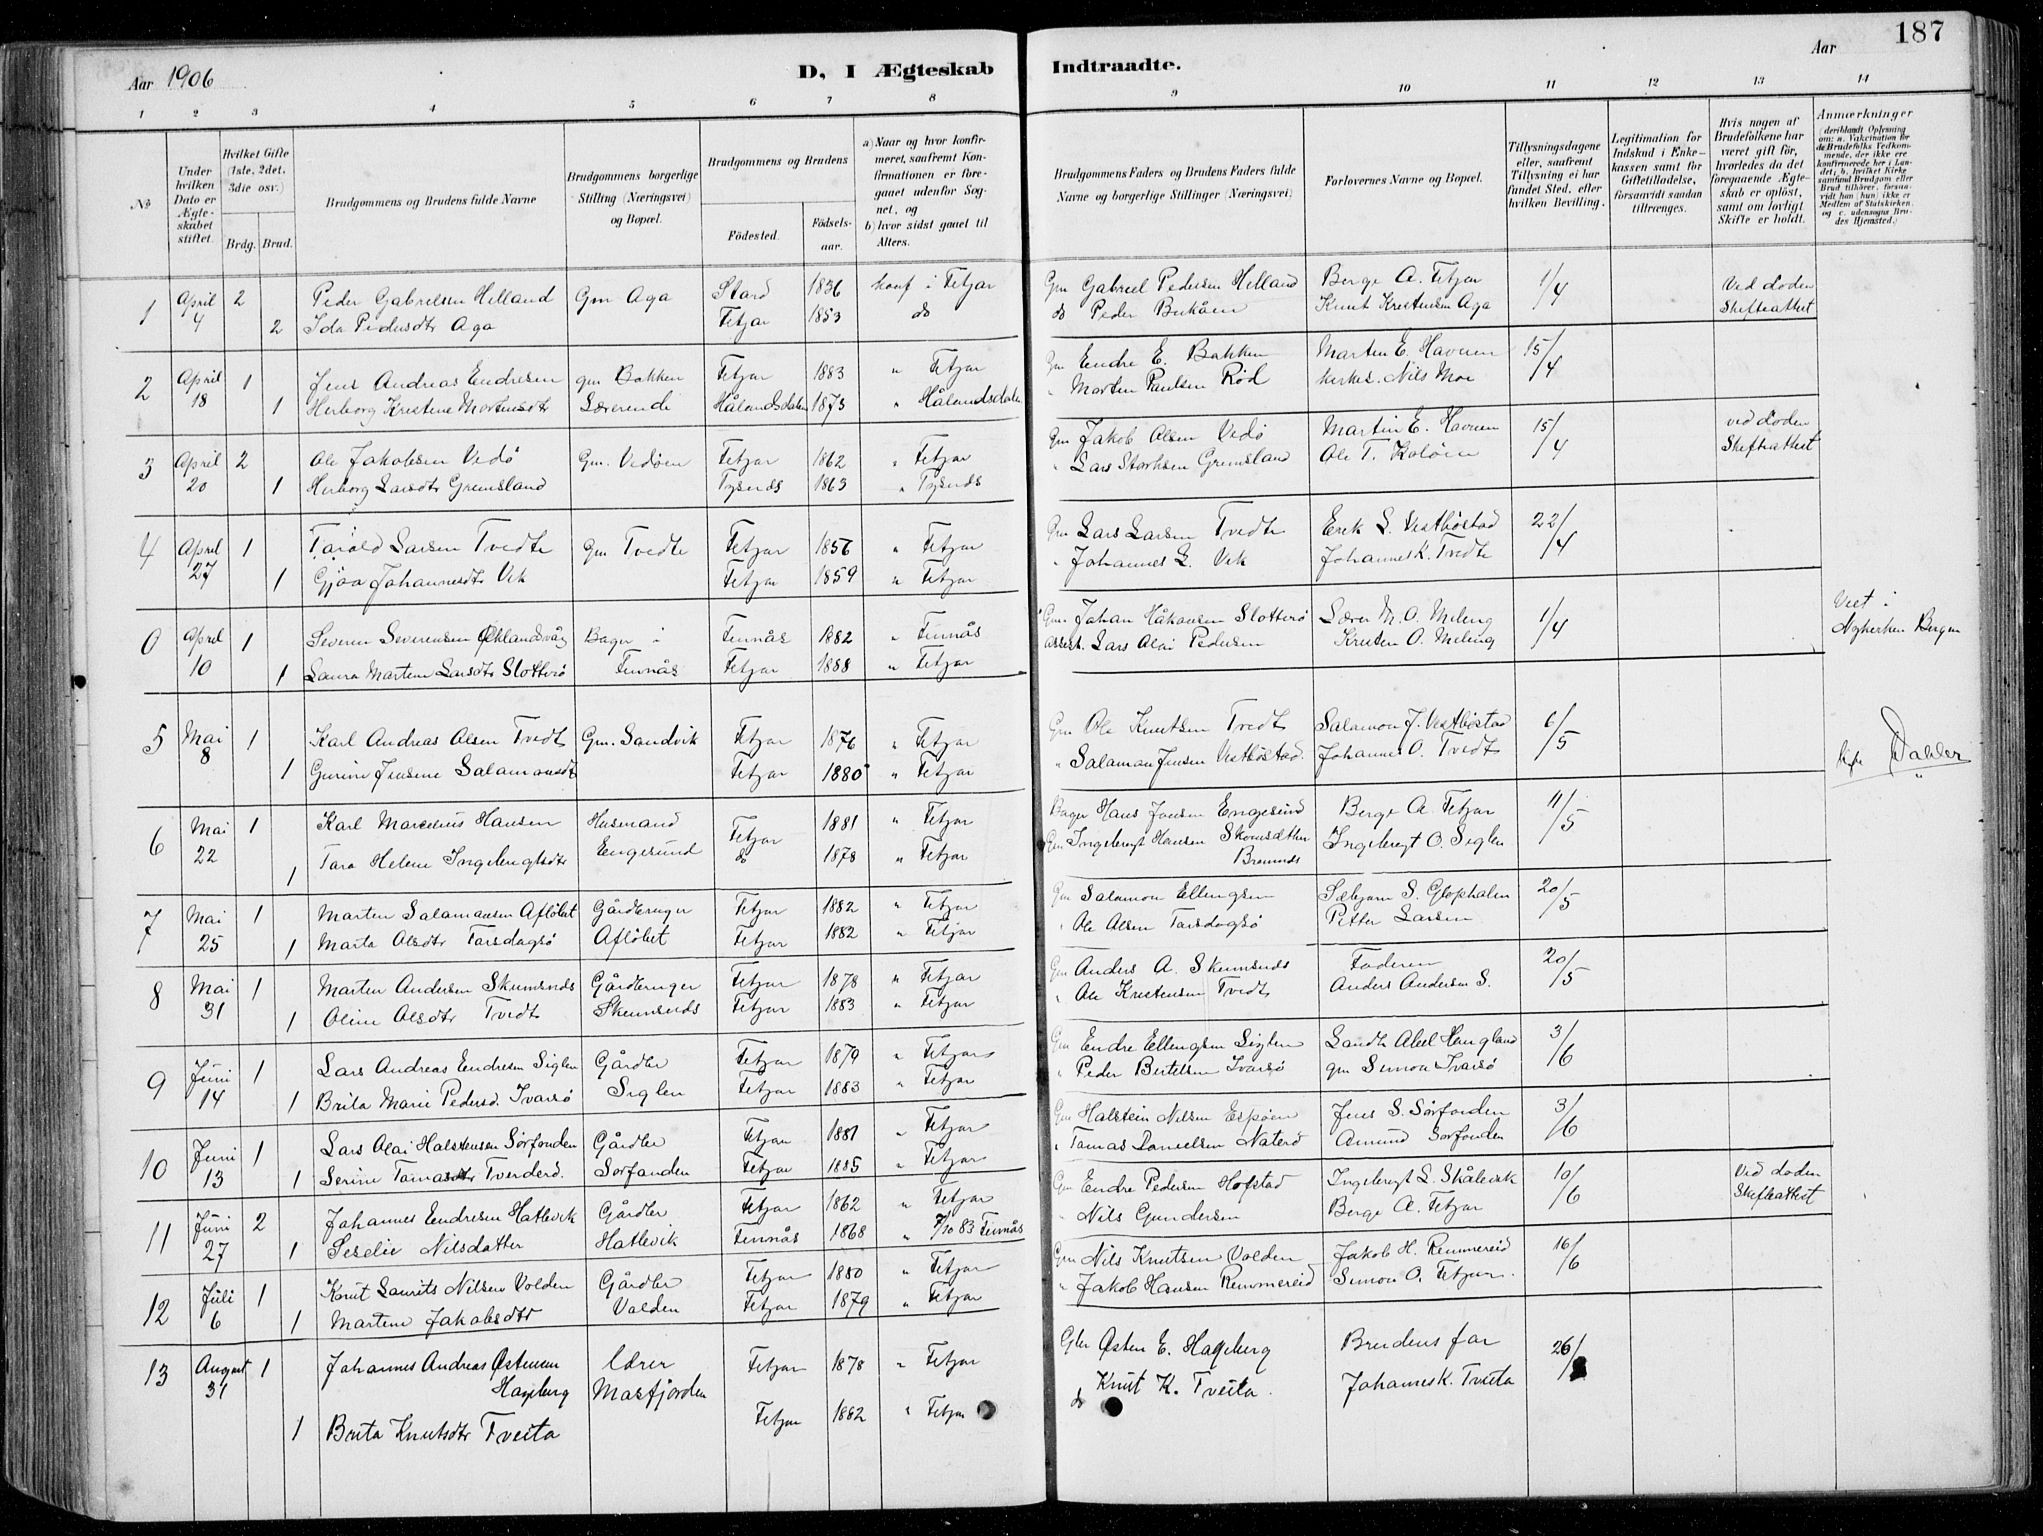 187
Aar 1906
D, I Ægteskab Indtraadte.
Aar
1 2 3 4 5 6 7 8 9 10 11 12 13 14
No
Under hvilken Dato er Ægteskabet stiftet.
Hvilket Gifte (1ste, 2det, 3die osv.)
Brdg. Brud.
Brudgommens og Brudens fulde Navne
Brudgommens borgerlige Stilling (Næringsvei) og Bopæl.
Brudgommens og Brudens
Fødested. Fødselsaar.
a) Naar og hvor konfirmeret, saafremt Konfirmationen er foregaaet udenfor Sognet, og
b) hvor sidst gaaet til Alters.
Brudgommens Faders og Brudens Faders fulde Navne og borgerlige Stillinger (Næringsvei)
Forlovernes Navne og Bopæl.
Tillysningsdagene eller, saafremt Tillysning ei har fundet Sted, efter hvilken Bevilling.
Legitimation for Indskud i Enkekassen samt for Giftetilladelse, forsaavidt saadan tiltrænges.
Hvis nogen af Brudefolkene har været gift før, hvorledes da det foregaaende Ægteskab er opløst, samt om lovligt Skifte er holdt.
Anmærkninger (deriblandt Oplysning om: a. Vakcination for de Brudefolks Vedkommende, der ikke ere konfirmerede her i Landet; b. hvilket Kirkesamfund Brudgom eller Brud tilhører, forsaavidt han (hun) ikke er Medlem af Statskirken, og c. udensogns Brudes Hjemsted.)
1 April 4 2 Peder Gabrielsen Helland Gm Aga Stord 1836 konf i Fitjar Gm Gabriel Pedersen Helland Berge A. Fitjar 1/4 Ved døden
2 Ida Pedersdtr Aga Fitjar 1853 do do Peder Knut Kristensen Aga Skifteattest
2 April 18 1 Jens Andreas Endresen gm Bakken Fitjar 1883 " Fitjar Gm Endre E. Bakken Marten E. Havnen 15/4
1 Herborg Kristine Mortensdtr Lærerinde Hålandsdalen 1873 " Hålandsdalen " Morten Paulsen Rød kirkes. Nils Moe
3 April 20 2 Ole Jakobsen Vedø Gm. Vedøen Fitjar 1862 " Fitjar Gm Jakob Olsen Vedø Martin E. Havnen 15/4 ved døden
1 Herborg Larsdtr Gremsland Tysnes 1863 " Tysnes " Lars Gremsland Ole T. Koløen Skifteattest
4 April 27 1 Torald Larsen Tvedte Gm Tvedte Fitjar 1856 " Fitjar Gm Lars Larsen Tvedte Erek L. Vestbøstad 22/4
1 Gjøa Johannesdtr Vik Fitjar 1859 " Fitjar " Johannes L. Vik Johannes K. Tvedte
0 April 10 1 Severin Severinsen Øklandsvåg Bager i Finnås 1882 " Finnås Gm Johan Håkonsen Slotterø Lærer M. O. Meling 1/4 Viet i
1 Laura Martine Larsdtr Slotterø Finnås Fitjar 1888 " Fitjar Lars Olai Pedersen Kristen O. Meling Nykirken Bergen
5 Mai 8 1 Karl Andreas Olsen Tvedt Gm. Sandvik Fitjar 1876 " Fitjar Gm Ole Knutsen Tvedt Salamon J. Vestbøstad 6/5
1 Gurine Jensine Salamonsdt Fitjar 1880 " Fitjar " Salamon Jensen Vestbøstad. Johannes O. Tvedt Dahler
6 Mai 22 1 Karl Marcelius Hansen Husmand Fitjar 1881 " Fitjar Bager Hans Jonsen Engesund Berge A. Fitjar 11/5
1 Tara Helene Ingebrigtsdtr Engesund do 1878 " Fitjar Gm Ingebrigt Hansen Ingebrigt O. Siglen
7 Mai 25 1 Marten Salamonsen Afløbet Gårdbruger Fitjar 1882 " Fitjar Gm Salamon Ellengsen Sæbjørn S. 20/5
1 Marta Olsdtr Tarsdagsø Afløbet Fitjar 1882 " Fitjar " Ole Olsen Tarsdagsø Petter Larsen
8 Mai 31 1 Marten Andersen Skumsnes Gårdbruger Fitjar 1878 " Fitjar Gm Anders A. Skumsnes Faderen 20/5
1 Oline Olsdtr Tvedt Skumsnes Fitjar 1883 " Fitjar " Ole Kristensen Tvedt Anders Andersen S.
9 Juni 14 1 Lars Andreas Endresen Siglen Gårdbr Fitjar 1879 " Fitjar Gm Endre Ellengsen Siglen Abel 3/6
1 Brita Marie Pedersd. Ivarsø Siglen Fitjar 1883 " Fitjar " Peder Bertelsen Ivarsø gm Simon Ivarsø
10 Juni 13 1 Lars Olai Halstensen Sørfonden Gårdbr Fitjar 1881 " Fitjar Gm Halstein Nilsen Espøen Jens S. Sørfonden 3/6
1 Serine Tomasdtr Sørfonden Fitjar 1885 " Fitjar " Tomas Danielsen Naterø Amund Sørfonden
11 Juni 27 2 Johannes Endresen Hatlevik Gårdbr Fitjar 1862 " Fitjar Gm Endre Pedersen Hofstad Ingebrigt L. Skålevik 10/6 Ved døden
1 Seselie Nilsdatter Hatlevik Finnås 1868 " 7/10 83 Finnås " Nils Gundersen Berge A. Fitjar Skifteattest
12 Juli 6 1 Knut Laurits Nilsen Volden Gårdbr Fitjar 1880 " Fitjar Gm Nils Knutsen Volden Jakob H. Remmereid 16/6
1 Martine Jakobsdtr Volden Fitjar 1879 " Fitjar " Jakob Hansen Remmereid Simon O. Fitjar.
13 August 31 1 Johannes Andreas Østensen Hageberg Lærer Masfjorden Fitjar 1878 " Fitjar Gbr Østen E. Hageberg Brudens far 26/8
1 Brita Knutsdtr Tveita Fitjar 1882 " Fitjar do Knut K. Tveita. Johannes K. Tveita